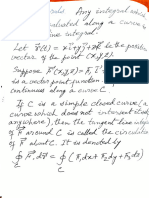 Any integral which
evaluated along a curve is
line integral.
Let r̄(t) = xī + yj̄ + zk̄ be the position
vector of the point (x,y,z).
Suppose F̄(x,y,z) = F₁ī +
vector point function
continuous along a curve C.
If C is a simple closed curve (a
curve which does not intersect itself
anywhere), then the tangent line integral
of F̄ around C is called the circulation
of F̄ about C. It is denoted by
∮ F̄·dr̄ = ∮ (F₁dx + F₂dy + F₃dz)
C C